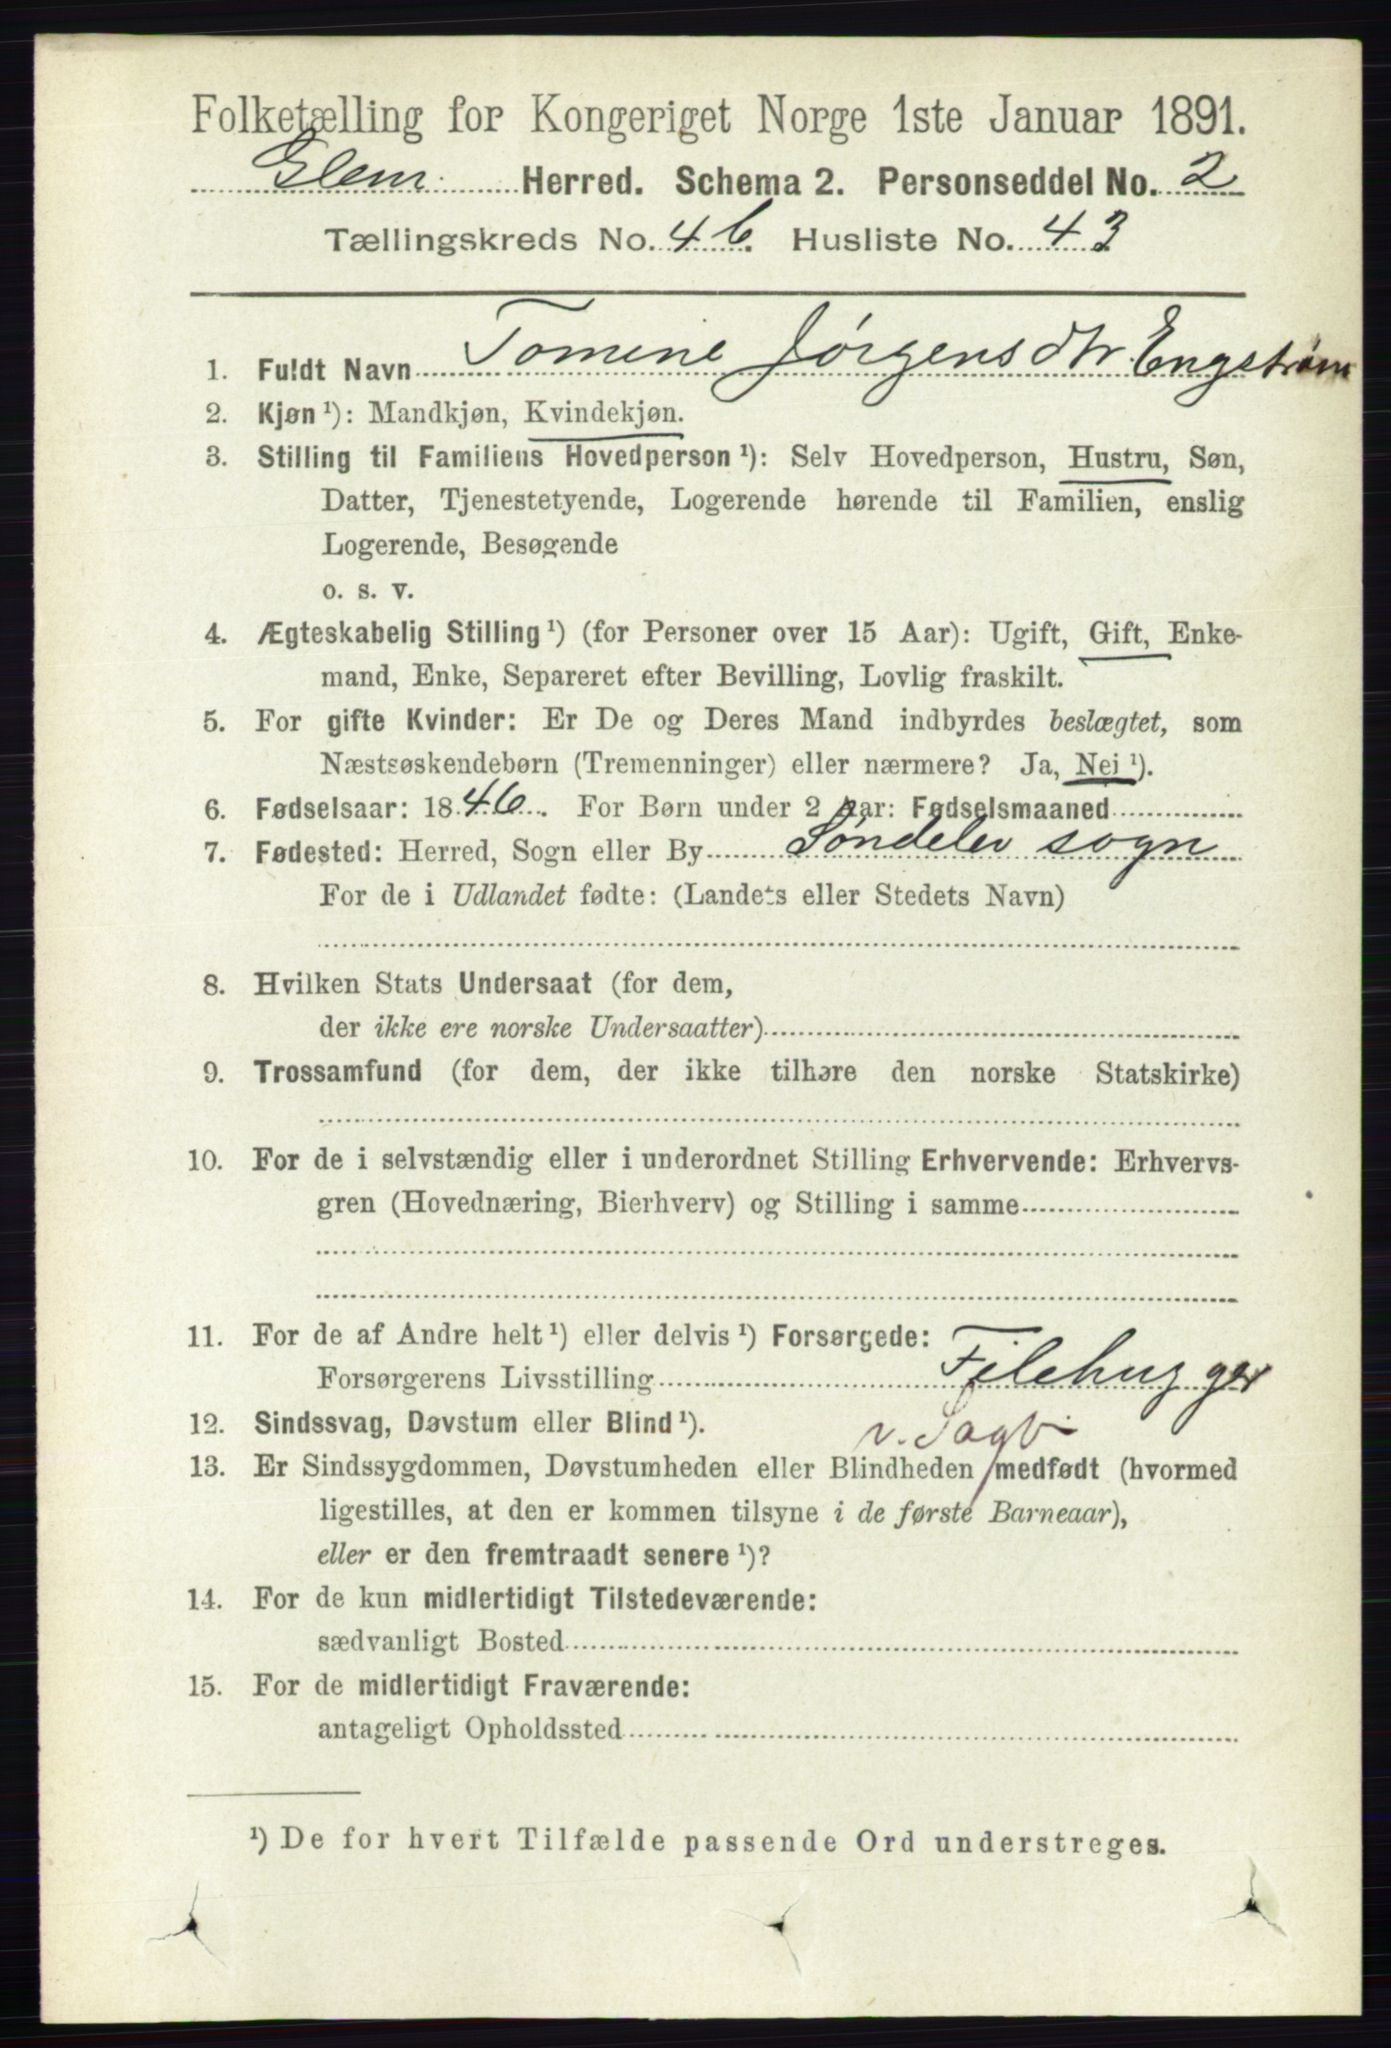 Folketælling for Kongeriget Norge 1ste Januar 1891.
Glem Herred. Schema 2. Personseddel No. 2
Tællingskreds No. 46. Husliste No. 43
1. Fuldt Navn Tomine Jørgensdtr. Engstrøm
2. Kjøn ¹): Mandkjøn, Kvindekjøn.
3. Stilling til Familiens Hovedperson ¹): Selv Hovedperson, Hustru, Søn,
Datter, Tjenestetyende, Logerende hørende til Familien, enslig
Logerende, Besøgende
o. s. v.
4. Ægteskabelig Stilling ¹) (for Personer over 15 Aar): Ugift, Gift, Enke-
mand, Enke, Separeret efter Bevilling, Lovlig fraskilt.
5. For gifte Kvinder: Er De og Deres Mand indbyrdes beslægtet, som
Næstsøskendebørn (Tremenninger) eller nærmere? Ja, Nei ¹).
6. Fødselsaar: 1846. For Børn under 2 Aar: Fødselsmaaned
7. Fødested: Herred, Sogn eller By Søndelev sogn
For de i Udlandet fødte: (Landets eller Stedets Navn)
8. Hvilken Stats Undersaat (for dem,
der ikke ere norske Undersaatter)
9. Trossamfund (for dem, der ikke tilhøre den norske Statskirke)
10. For de i selvstændig eller i underordnet Stilling Erhvervende: Erhvervs-
gren (Hovednæring, Bierhverv) og Stilling i samme
11. For de af Andre helt ¹) eller delvis ¹) Forsørgede:
Forsørgerens Livsstilling Filehugger
12. Sindssvag, Døvstum eller Blind ¹). v. Sagb
13. Er Sindssygdommen, Døvstumheden eller Blindheden medfødt (hvormed
ligestilles, at den er kommen tilsyne i de første Barneaar),
eller er den fremtraadt senere ¹)?
14. For de kun midlertidigt Tilstedeværende:
sædvanligt Bosted
15. For de midlertidigt Fraværende:
antageligt Opholdssted
¹) De for hvert Tilfælde passende Ord understreges.